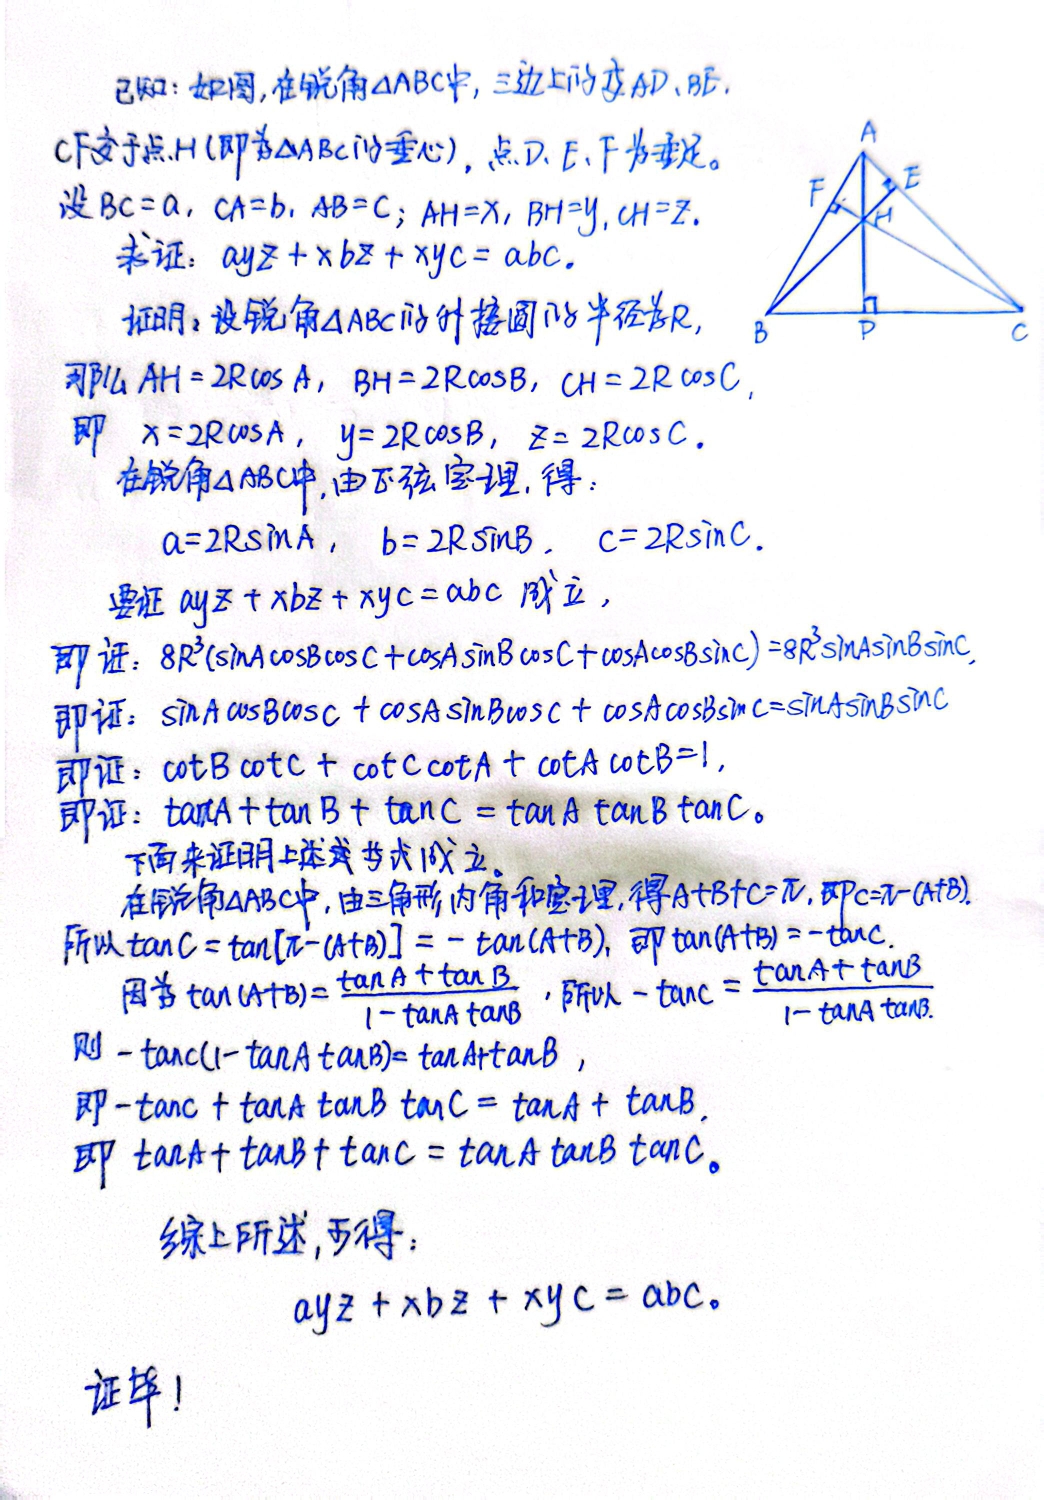 已知：如图，在锐角△ABC中，三边上的高AD、BE、
CF交于点H（即为△ABC的垂心），点D、E、F为垂足。
设BC=a，CA=b，AB=c；AH=x，BH=y，CH=z.
求证：ayz+xbz+xyc=abc。
A
F
E
H
B
D
C
证明：设锐角△ABC的外接圆的半径为R，
那么AH=2RcosA，BH=2RcosB，CH=2RcosC，
即 x=2RcosA，y=2RcosB，z=2RcosC.
在锐角△ABC中，由正弦定理，得：
a=2RsinA， b=2RsinB， c=2RsinC.
要证ayz+xbz+xyc=abc成立，
即证：8R³(sinAcosBcosC+cosAsinBcosC+cosAcosBsinC)=8R³sinAsinBsinC，
即证：sinAcosBcosC+cosAsinBcosC+cosAcosBsinC=sinAsinBsinC
即证：cotBcotC+cotCcotA+cotAcotB=1，
即证：tanA+tanB+tanC=tanAtanBtanC。
下面来证明上述式成立。
在锐角△ABC中，由三角形内角和定理，得A+B+C=π，即C=π-(A+B).
所以tanC=tan[π-(A+B)]=-tan(A+B)，即tan(A+B)=-tanC.
因为tan(A+B)=(tanA+tanB)/(1-tanAtanB)，所以-tanC=(tanA+tanB)/(1-tanAtanB).
则-tanC(1-tanAtanB)=tanA+tanB，
即-tanC+tanAtanBtanC=tanA+tanB，
即tanA+tanB+tanC=tanAtanBtanC。
综上所述，可得：
ayz+xbz+xyc=abc。
证毕！